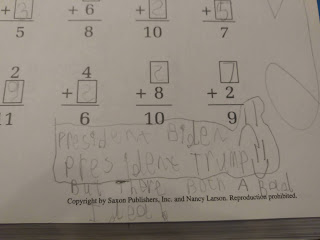 + 3 + 6 + 2 + 5
5 8 10 7
2 4 2 7
9 + 2 + 8 + 2
11 6 10 9
President Biden OR
President Trump
But There Both A Bad
Idea
Copyright by Saxon Publishers, Inc. and Nancy Larson. Reproduction prohibited.